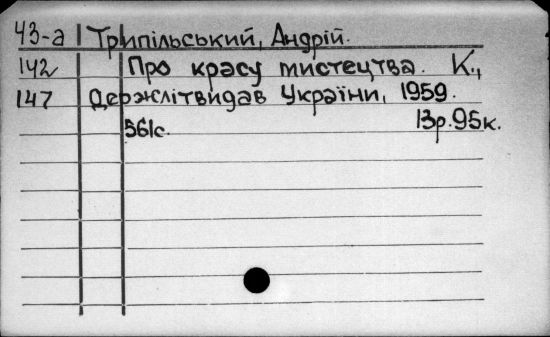 43-а Трипільський, Андрій.
142 Про красу мистецтва. К.,
147 Держлітвидав України, 1959.
561с. 13р.95к.